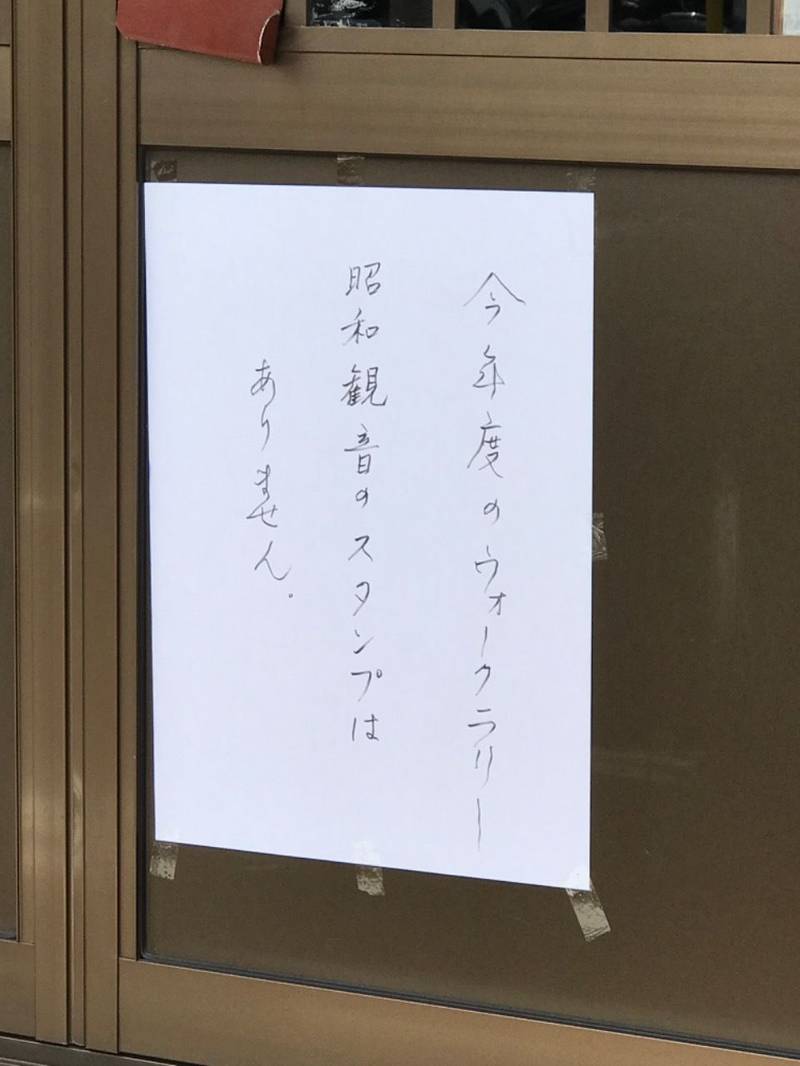 今年度のウォークラリー
昭和観音のスタンプは
ありません。